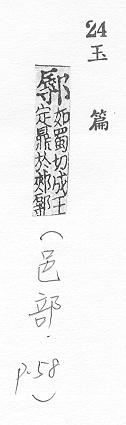 24
玉篇
鄏
如蜀切成王
定鼎於郟鄏
(邑部．
p.58)